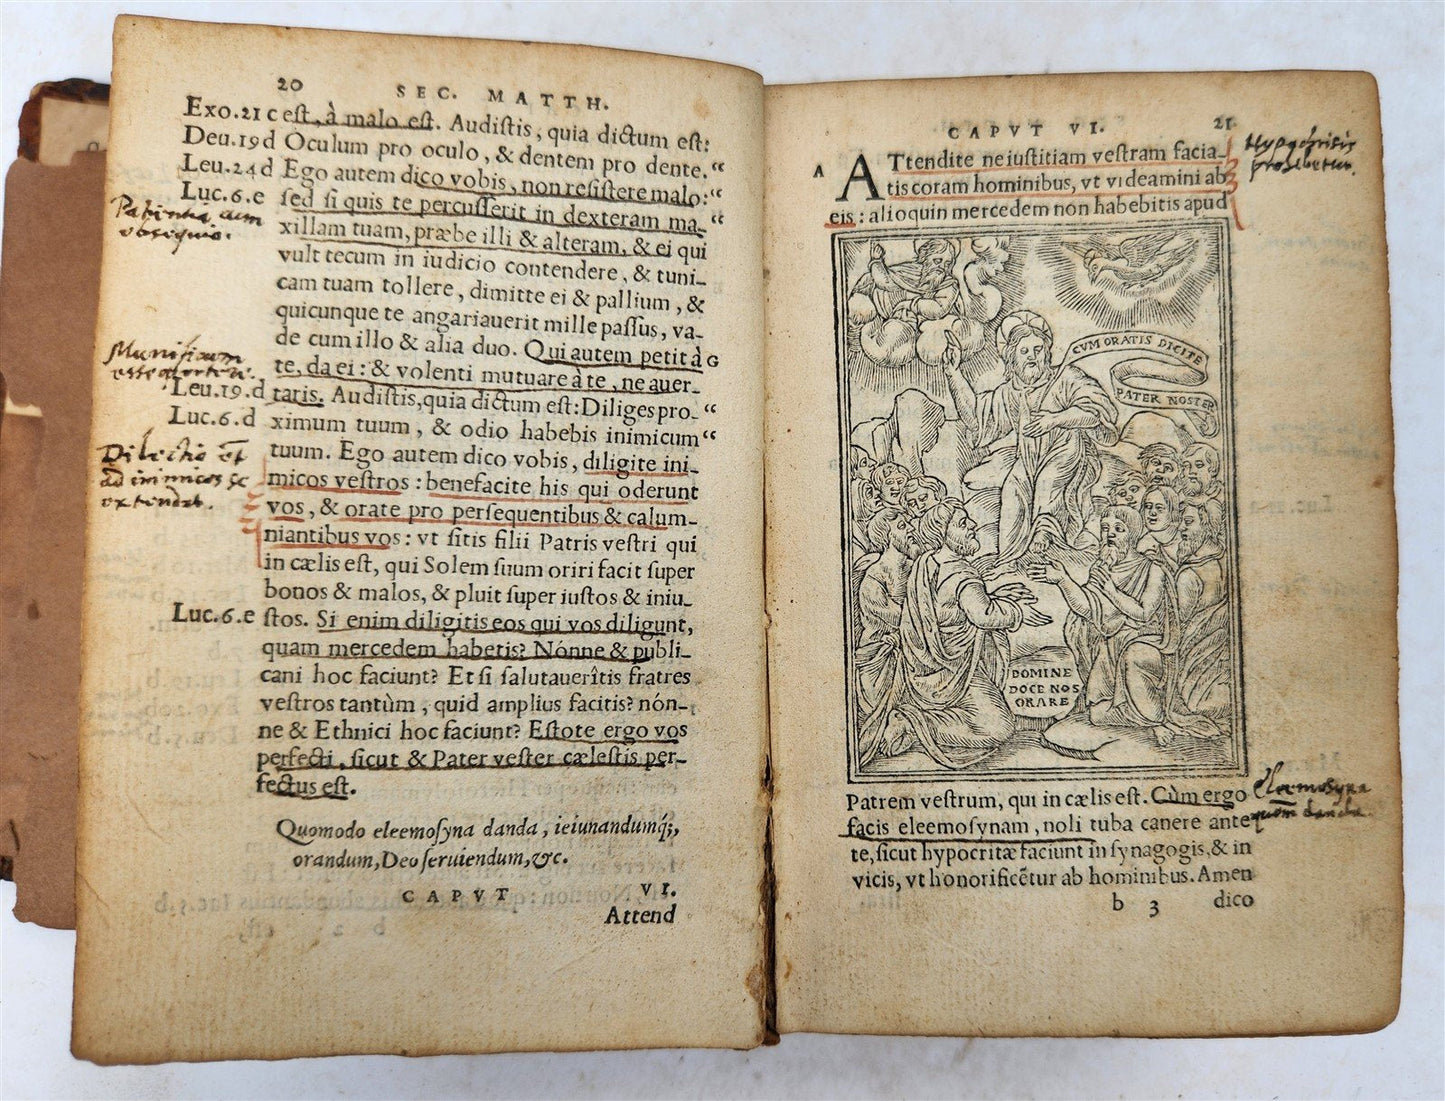 20 SEC. MATTH.
Exo.21 c est, à malo est. Audistis, quia dictum est:
Deu.19d Oculum pro oculo, & dentem pro dente. “
Leu.24d Ego autem dico vobis, non resistere malo: “
Luc.6.e sed si quis te percusserit in dexteram ma- “
xillam tuam, præbe illi & alteram, & ei qui
vult tecum in iudicio contendere, & tuni-
cam tuam tollere, dimitte ei & pallium, &
quicunque te angariauerit mille passus, va-
de cum illo & alia duo. Qui autem petit à G
te, da ei: & volenti mutuare à te, ne auer-
Leu.19.d taris. Audistis, quia dictum est: Diliges pro- “
Luc.6.d ximum tuum, & odio habebis inimicum “
tuum. Ego autem dico vobis, diligite ini-
micos vestros: benefacite his qui oderunt
vos, & orate pro persequentibus & calum-
niantibus vos: vt sitis filii Patris vestri qui
in cælis est, qui Solem suum oriri facit super
bonos & malos, & pluit super iustos & iniu-
Luc.6.e stos. Si enim diligitis eos qui vos diligunt,
quam mercedem habetis? Nónne & publi-
cani hoc faciunt? Et si salutauerîtis fratres
vestros tantùm, quid amplius facitis? nón-
ne & Ethnici hoc faciunt? Estote ergo vos
perfecti, sicut & Pater vester cælestis per-
fectus est.
Quomodo eleemosyna danda, ieiunandumq;,
orandum, Deo seruiendum, &c.
CAPVT VI.
Attend
Patientia cum
obsequio.
Munificum
esse oportere.
Dilectio et
ad inimicos se
extendat.
CAPVT VI. 21
A ATtendite ne iustitiam vestram facia-
tis coram hominibus, vt videamini ab
eis: alioquin mercedem non habebitis apud
CUM ORATIS DICITE
PATER NOSTER
DOMINE
DOCE NOS
ORARE
Patrem vestrum, qui in cælis est. Cùm ergo
facis eleemosynam, noli tuba canere ante
te, sicut hypocritæ faciunt in synagogis, & in
vicis, vt honorificētur ab hominibus. Amen
b 3 dico
Hypocrisis
Eleemosyna
danda.